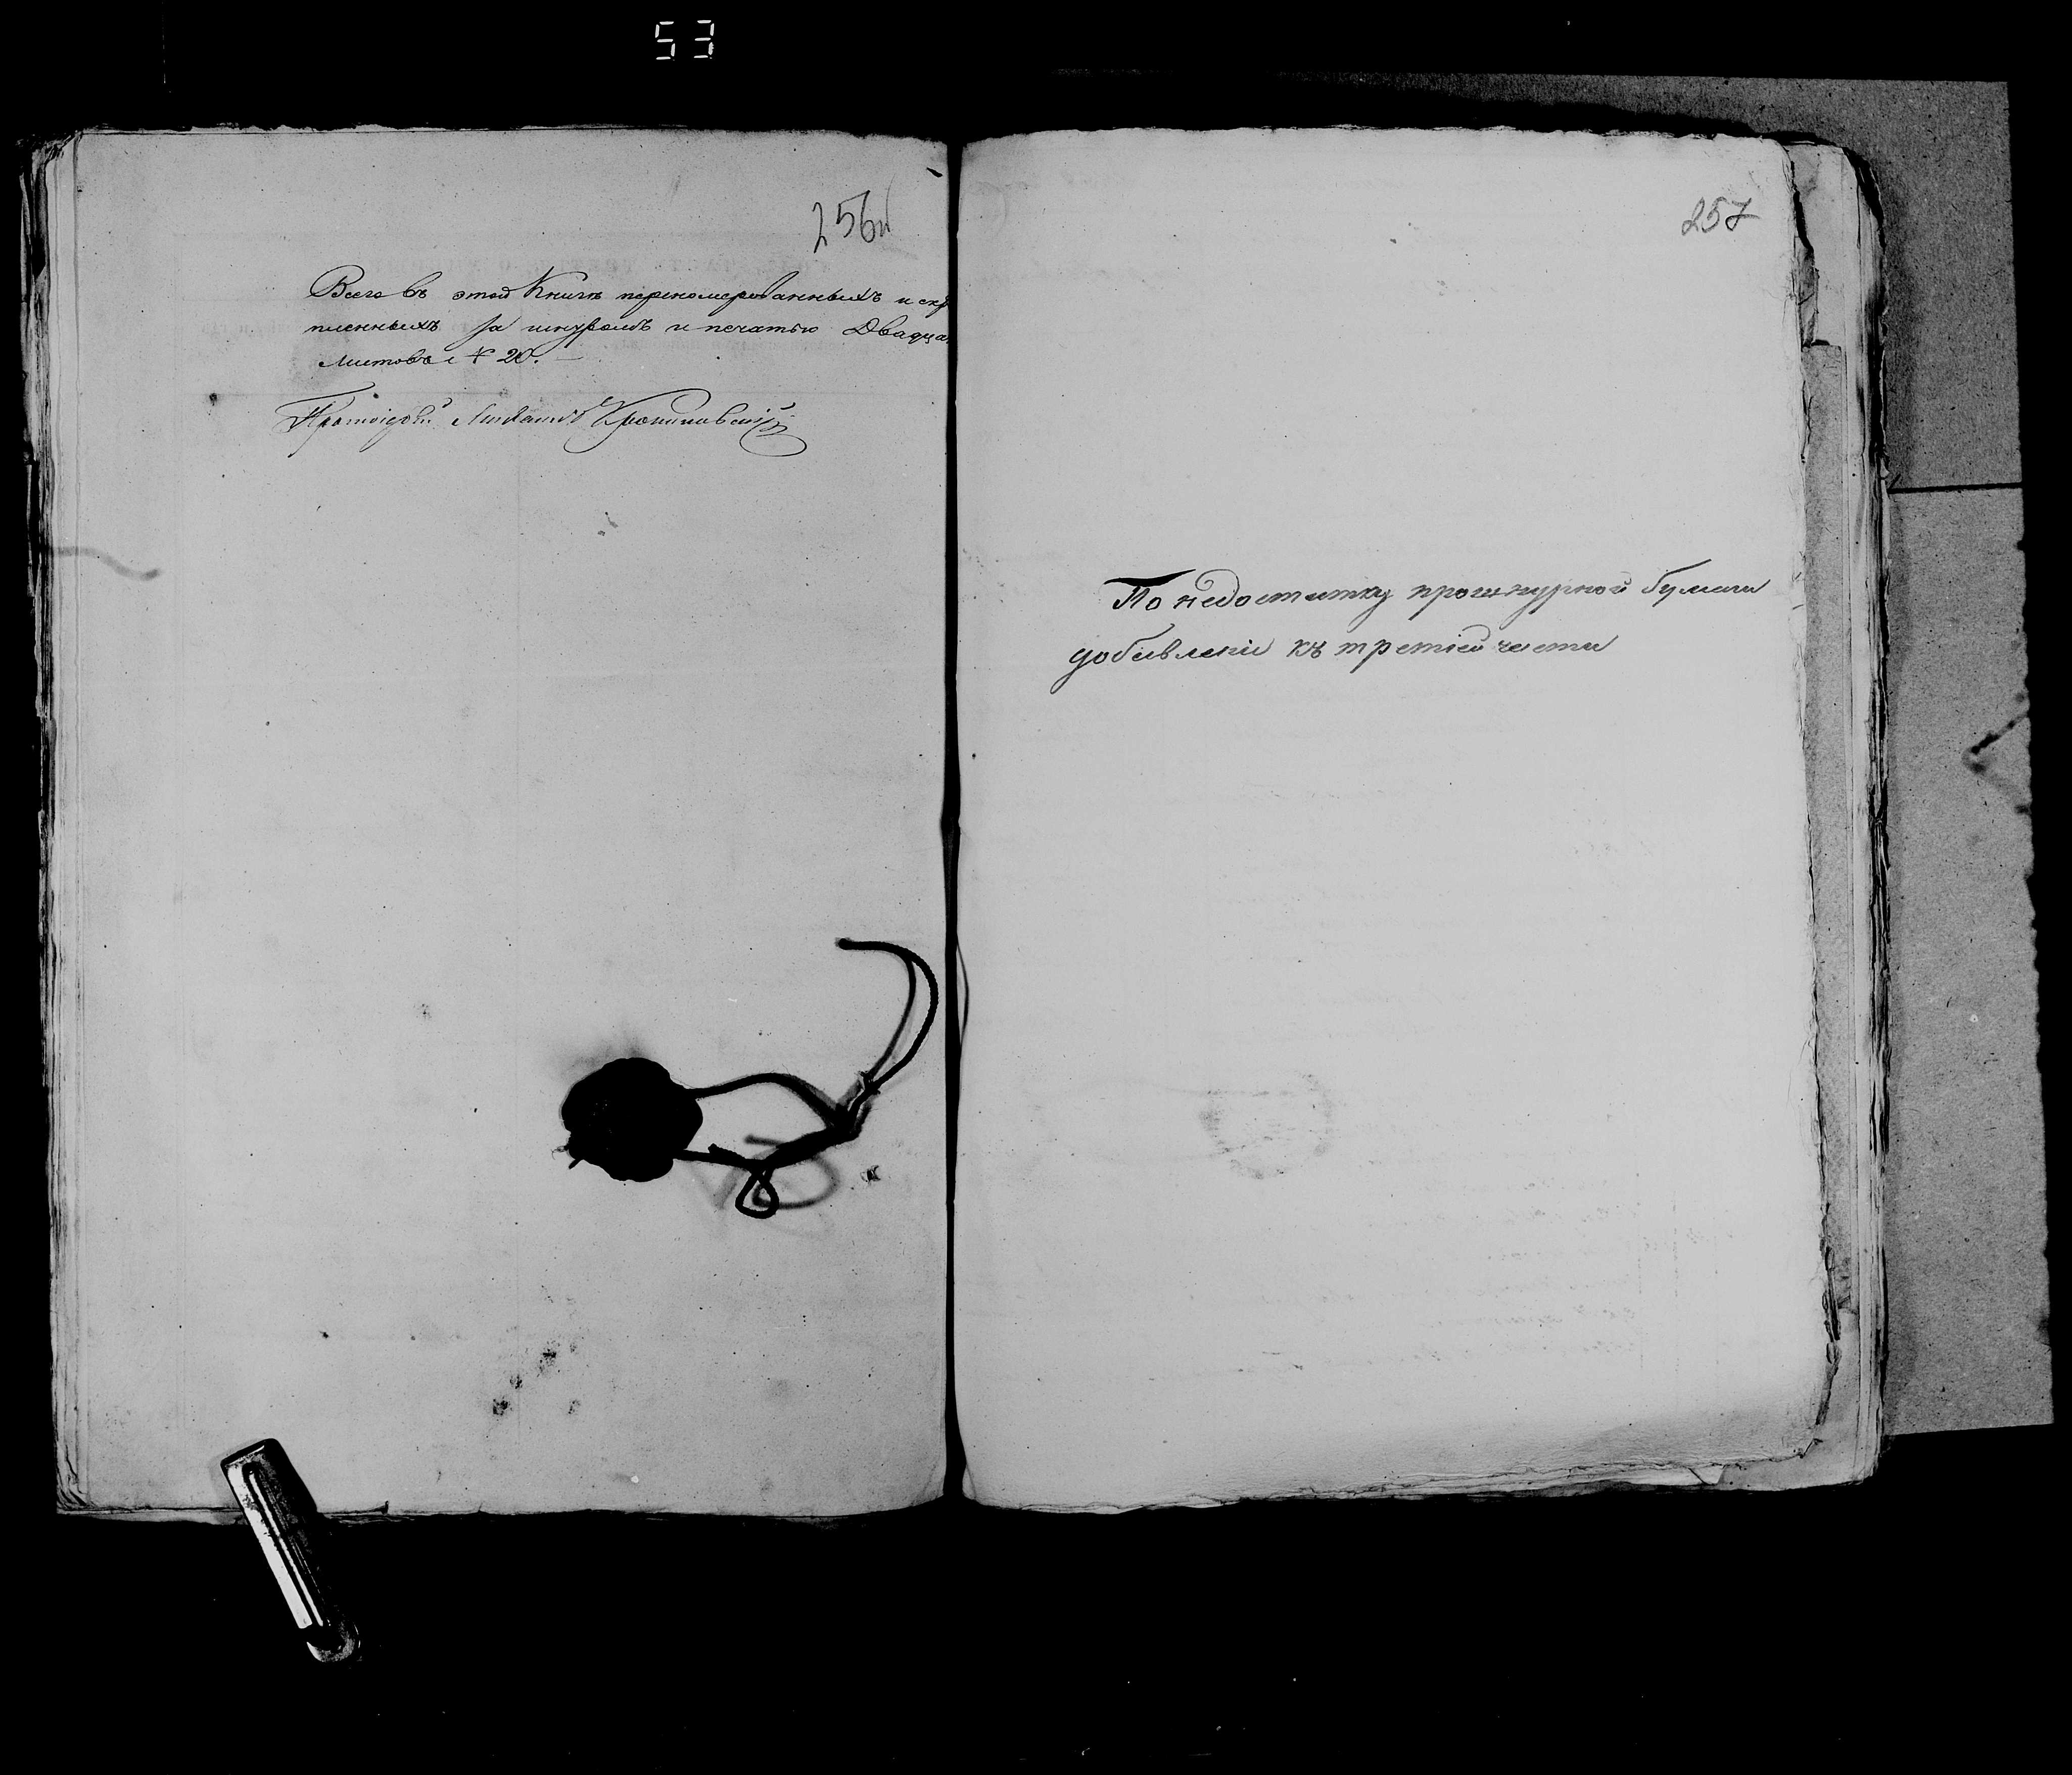 53
256
Всего въ этой Книгѣ перенумерованныхъ и скр
пленныхъ за шнуромъ и печатью Двадца
Листовъ № 20.
Протоіерей Михаилъ
257
По недостатку прошнурной бумаги
добавленіи къ третіей части